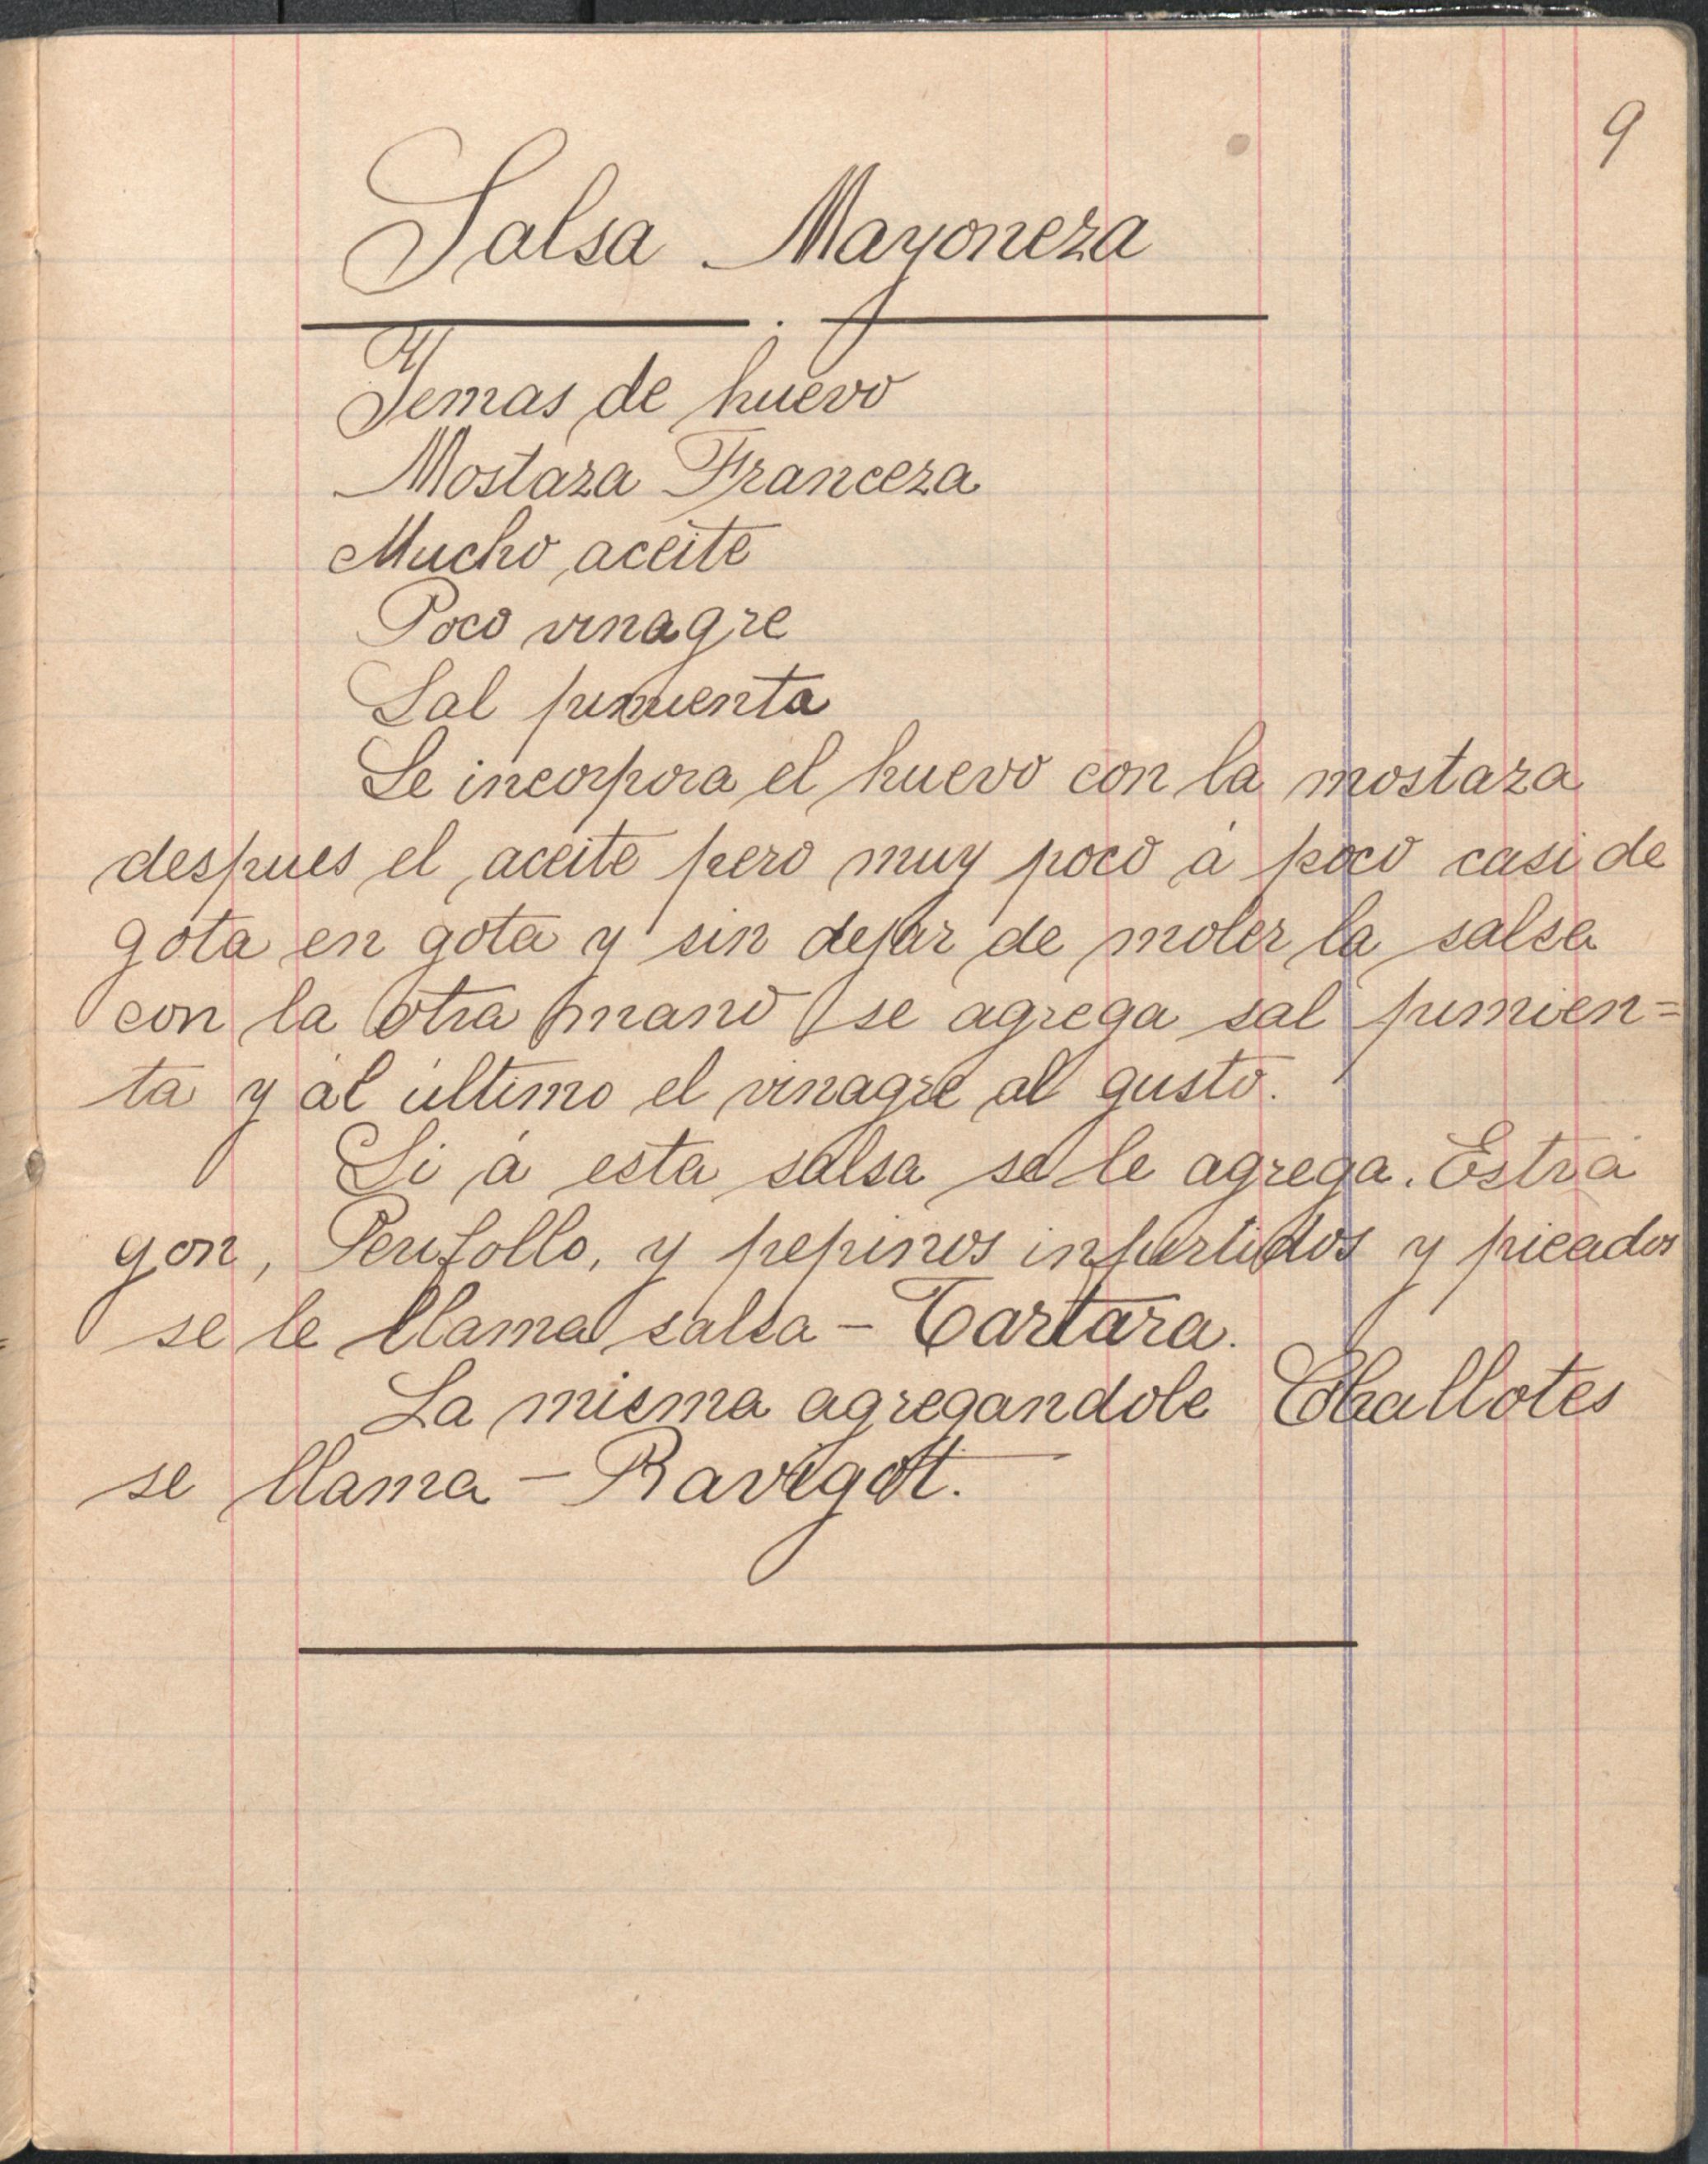 9
Salsa Mayoneza
Yemas de huevo
Mostaza Franceza
Mucho aceite
Poco vinagre
Sal pimienta
Se incorpora el huevo con la mostaza
despues el aceite pero muy poco á poco casi de
gota en gota y sin dejar de moler la salsa
con la otra mano se agrega sal pimien=
ta y al último el vinagre al gusto.
Si á esta salsa se le agrega. Estra
gon, Perifollo, y pepinos inpertidos y picados
se le llama salsa - Tartara.
La misma agregandole Challotes
se llama - Ravigott.